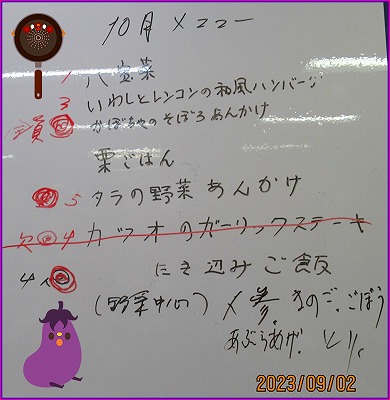 10月メニュー
1 八宝菜
3 いわしとレンコンの和風ハンバーグ
かぼちゃのそぼろあんかけ
栗ごはん
5 タラの野菜あんかけ
欠 4 カツオのガーリックステーキ
4人 にき込みご飯
(野菜中心) 人参. きのこ. ごぼう
あぶらあげ. とり.
2023/09/02